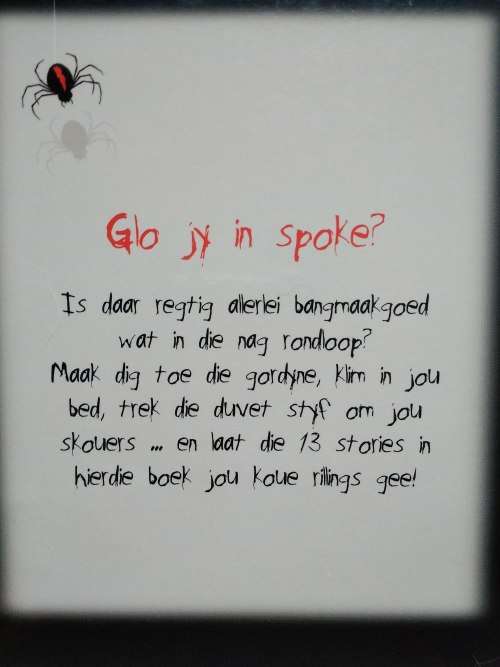 Glo jy in spoke?
Is daar regtig allerlei bangmaakgoed
wat in die nag rondloop?
Maak dig toe die gordyne, klim in jou
bed, trek die duvet styf om jou
skouers ... en laat die 13 stories in
hierdie boek jou koue rillings gee!